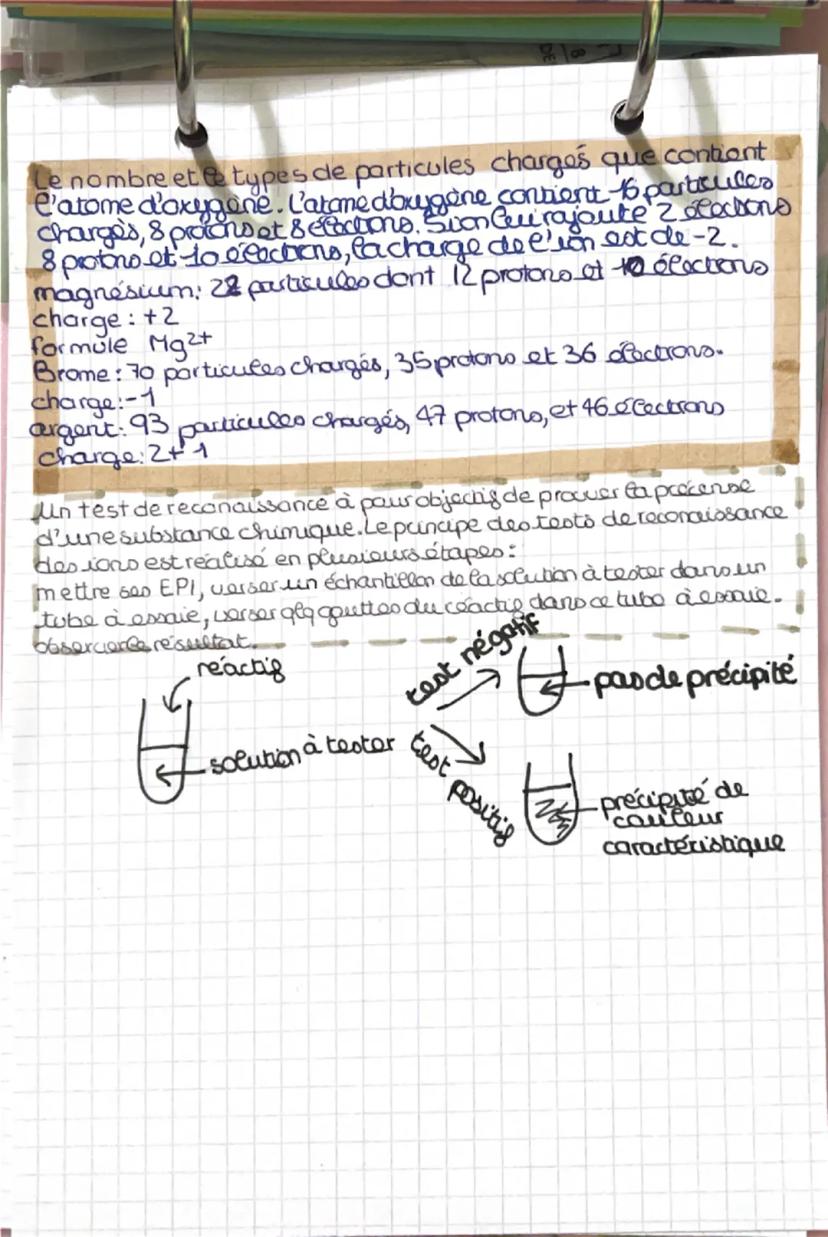 Le nombre et le types de particules chargés que contient
l'atome d'oxygène. L'atome d'oxygène contient 16 particules
chargés, 8 protons et 8 électrons. Si on lui rajoute 2 électrons
8 protons et 10 électrons, la charge de l'ion est de -2.
magnésium: 22 particules dont 12 protons et 10 électrons
charge: +2
formule Mg²⁺
Brome: 70 particules chargés, 35 protons et 36 électrons.
charge: -1
argent: 93 particules chargés, 47 protons, et 46 électrons
charge: 2+ 1
Un test de reconaissance à pour objectif de prouver la présense
d'une substance chimique. Le principe des tests de reconaissance
des ions est réalisé en plusieurs étapes:
mettre ses EPI, verser un échantillon de la solution à tester dans un
tube à essaie, verser qlq gouttes du réactif dans ce tube à essaie.
observer le résultat.
réactif
solution à tester
test négatif
pas de précipité
test positif
précipité de
couleur
caractéristique